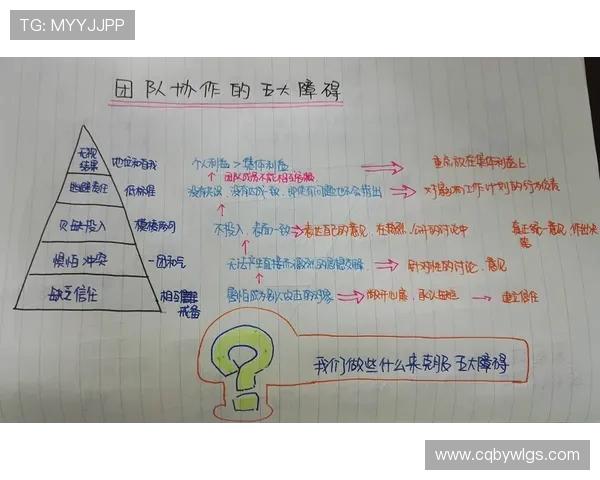 TG: MYYJJPP
团队协作的五大障碍
无视结果
地位和自我
个人利益 > 集体利益
重点放在集体利益上
团队成员不能相互
逃避责任
低标准
没有失误,没有达成一致,即使有问题也不会指出
对影响工作计划的行为负责
欠缺投入
模棱两可
不投入,表面一致
表达自己的意见,在热烈、公开的讨论中
真正统一意见,作出决策
惧怕冲突
一团和气
无法产生直接而激烈的思想交锋
针对性的讨论、意见
缺乏信任
相互戒备
害怕成为别人攻击的对象
敞开心扉,承认缺陷
建立信任
我们做些什么来克服五大障碍
www.cqbywlgs.com